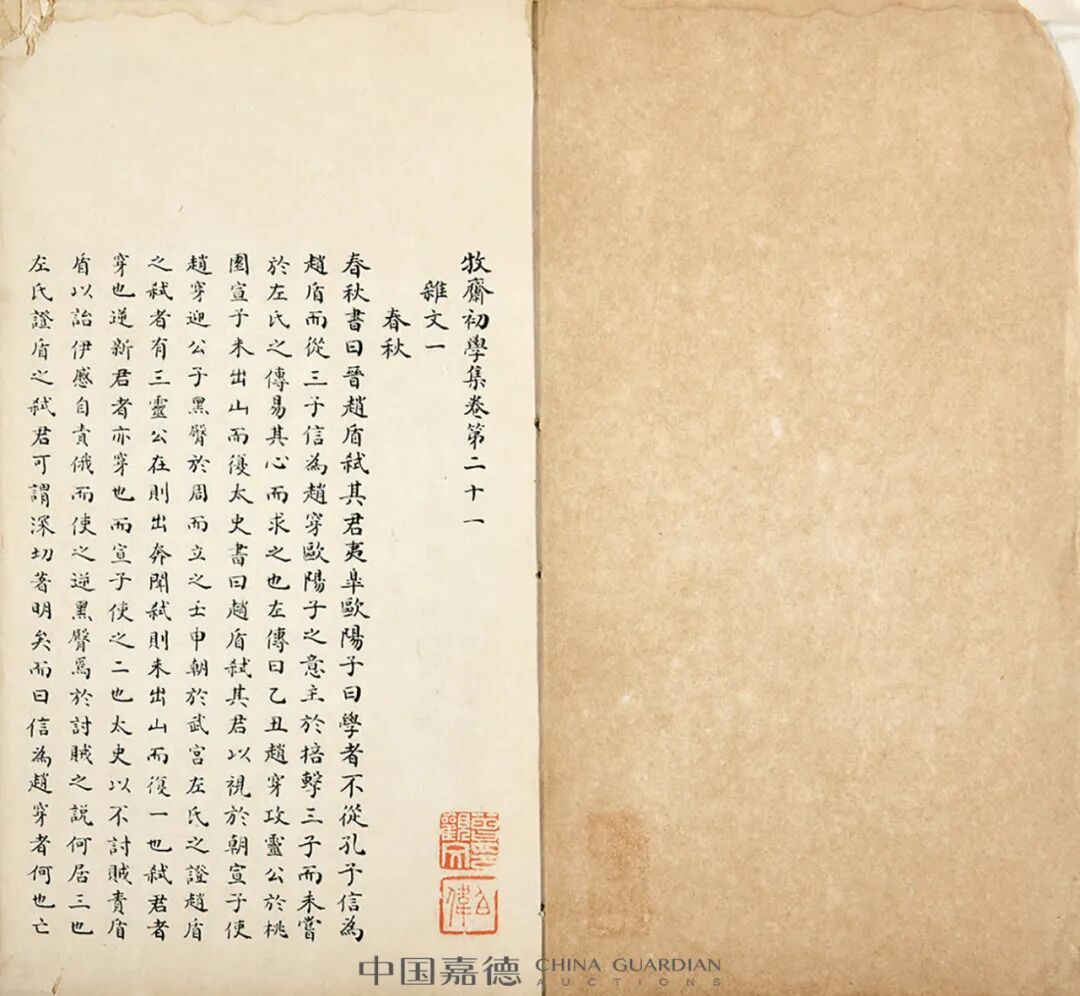 牧齋初學集卷第二十一
雜文一
春秋
春秋書曰晉趙盾弑其君夷皐歐陽子曰學者不從孔子信為
趙盾而從三子信為趙穿歐陽子之意主於掊擊三子而未嘗
於左氏之傳易其心而求之也左傳曰乙丑趙穿攻靈公於桃
園宣子未出山而復太史書曰趙盾弑其君以視於朝宣子使
趙穿迎公子黑臀於周而立之壬申朝於武宮左氏之證趙盾
之弑者有三靈公在則出奔聞弑則未出山而復一也弑君者
穿也逆新君者亦穿也而宣子使之二也太史以不討賊責盾
盾以詒伊慼自責俄而使之逆黑臀焉於討賊之說何居三也
左氏證盾之弑君可謂深切著明矣而曰信為趙穿者何也亡
中国嘉德 CHINA GUARDIAN
AUCTIONS